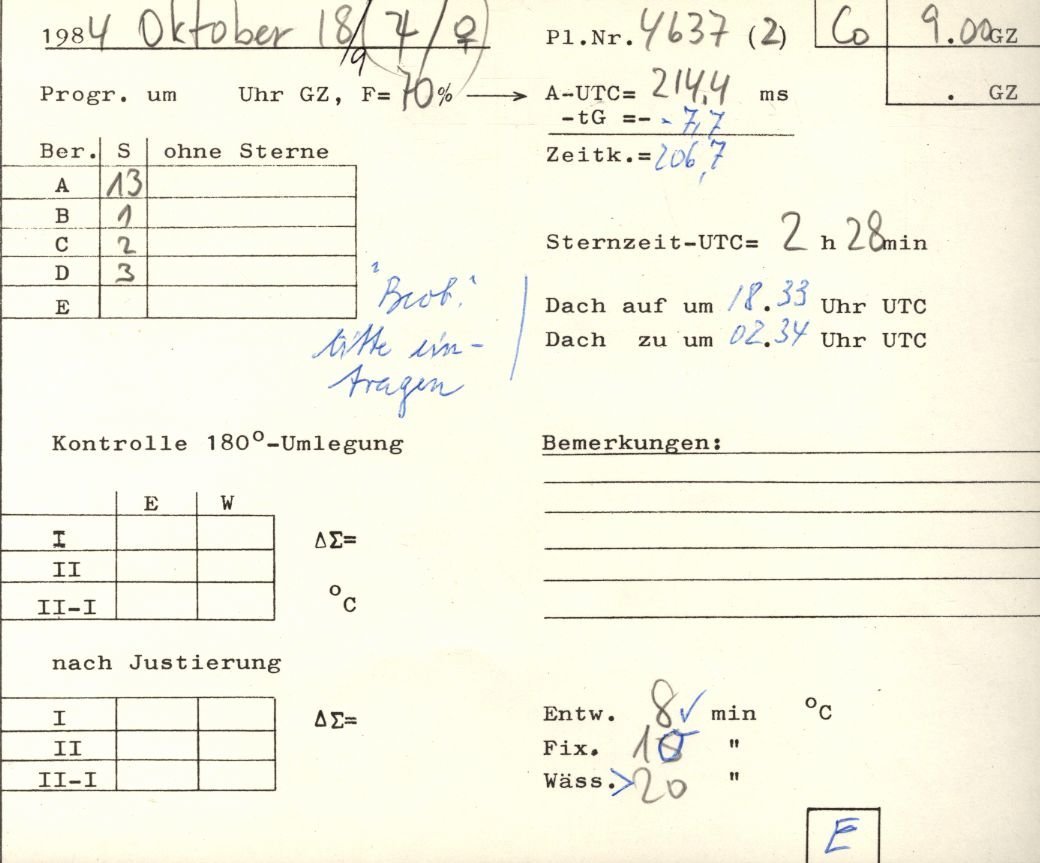 1984 Oktober 18/19 (♃/♀)
Pl.Nr. 4637 (2)
Co 9.00 GZ
Progr. um Uhr GZ, F= 70% → A-UTC= 214,4 ms
. GZ
-tG =- - 7,7
Zeitk.= 206,7
Ber. S ohne Sterne
A 13
B 1
C 2
D 3
E
Sternzeit-UTC= 2 h 28min
"Beob."
bitte ein-
tragen
Dach auf um 18.33 Uhr UTC
Dach zu um 02.34 Uhr UTC
Kontrolle 180°-Umlegung
E W
I ΔΣ=
II
II-I °C
Bemerkungen:
nach Justierung
I ΔΣ=
II
II-I
Entw. 8 ✓ min °C
Fix. 10 "
Wäss. >20 "
E